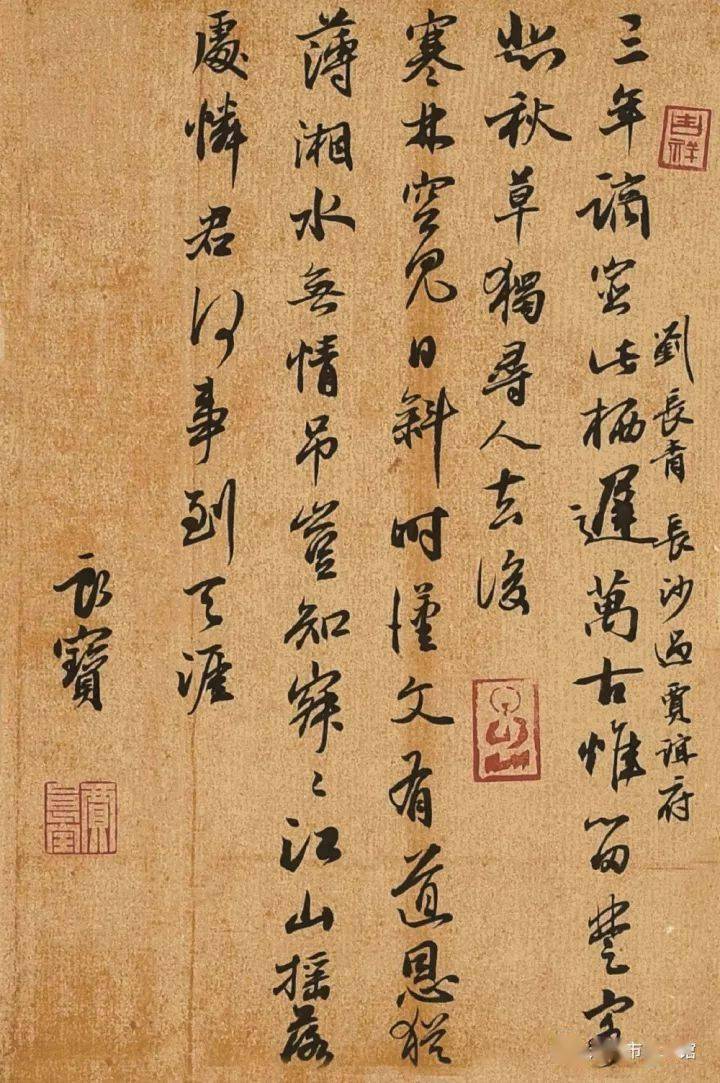 劉長青長沙過賈誼府
吉祥
三年謫宦此栖遲萬古惟留楚客
悲秋草獨尋人去後
寒林空見日斜時漢文有道恩猶
薄湘水無情吊豈知寂〻江山摇落
處憐君何事到天涯
寶